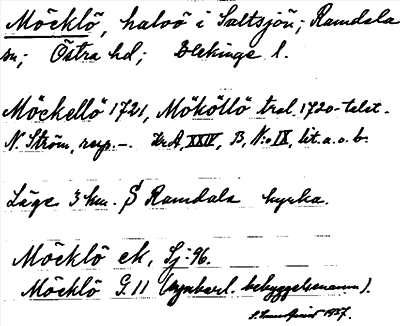 Möcklö, halvö i Saltsjön; Ramdala
sn; Östra hd; Blekinge l.
Möckellö 1721, Mököllö trol. 1720-talet.
N. Ström, resp. –. KrA, XXIV, B, N:o IX, lit. a. o. b.
Läge 3 km. S Ramdala kyrka.
Möcklö ek, Sj: 96.
Möcklö G. 11 (synbarl. bebyggelsenamn).
1927.